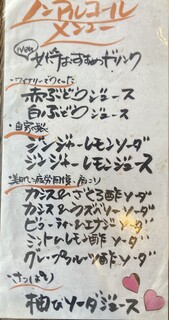 ノンアルコール
メニュー
New
女将おすすめドリンク
・ワイナリーでつくった
赤ぶどうジュース
白ぶどうジュース
・自家製
ジンジャーレモンソーダ
ジンジャーレモンジュース
・美肌、疲労回復、肩こり
カシス&ざくろ酢ソーダ
カシス&クランベリー酢ソーダ
ビューティー&エナジーソーダ
ミント&レモン酢ソーダ
グレープフルーツ酢ソーダ
柚ひソーダジュース